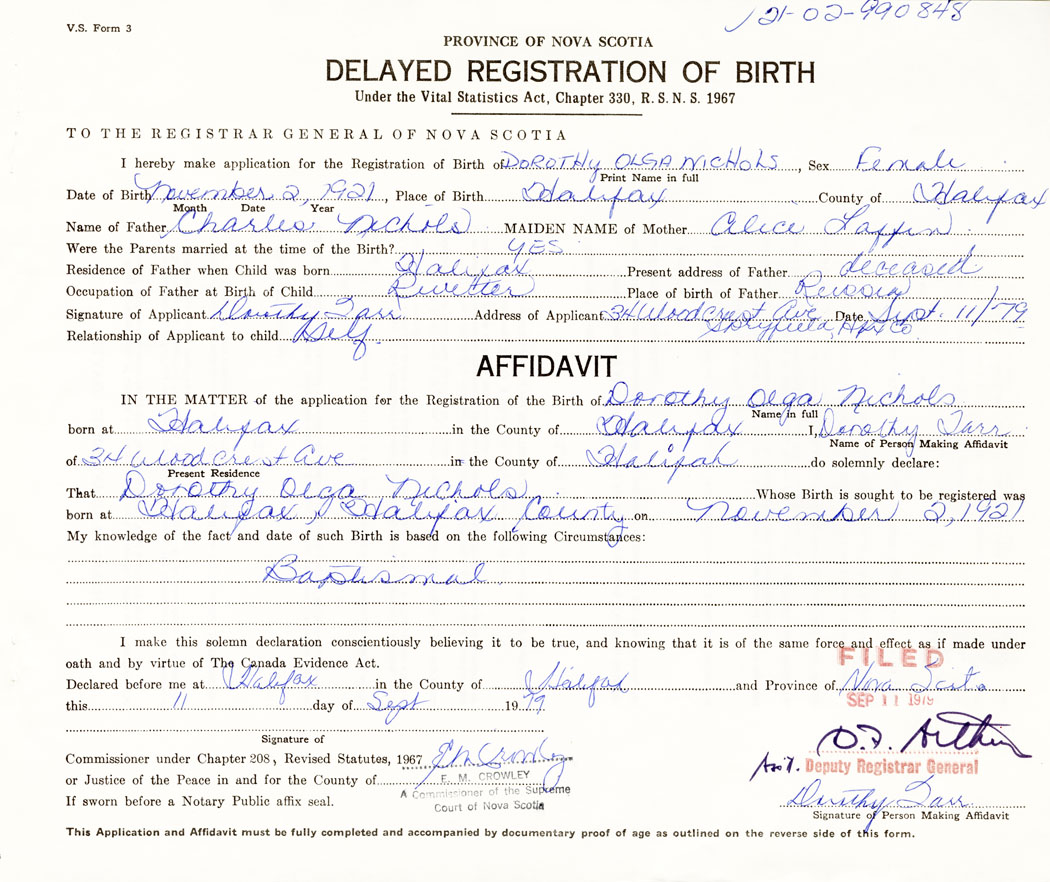 V.S. Form 3
121-02-990848
PROVINCE OF NOVA SCOTIA
DELAYED REGISTRATION OF BIRTH
Under the Vital Statistics Act, Chapter 330, R. S. N. S. 1967
TO THE REGISTRAR GENERAL OF NOVA SCOTIA
I hereby make application for the Registration of Birth of DOROTHY OLGA NICHOLS, Sex Female
Print Name in full
Date of Birth November 2, 1921, Place of Birth Halifax County of Halifax
Month Date Year
Name of Father Charles Nichols MAIDEN NAME of Mother Alice Laffin
Were the Parents married at the time of the Birth? YES
Residence of Father when Child was born Halifax Present address of Father deceased
Occupation of Father at Birth of Child Rivetter Place of birth of Father Russia
Signature of Applicant Dorothy Tarr Address of Applicant 34 Woodcrest Ave Date Sept. 11/79
Spryfield, Hfx Co
Relationship of Applicant to child Self
AFFIDAVIT
IN THE MATTER of the application for the Registration of the Birth of Dorothy Olga Nichols
Name in full
born at Halifax in the County of Halifax I, Dorothy Tarr
Name of Person Making Affidavit
of 34 Woodcrest Ave in the County of Halifax do solemnly declare:
Present Residence
That Dorothy Olga Nichols Whose Birth is sought to be registered was
born at Halifax, Halifax County on November 2, 1921
My knowledge of the fact and date of such Birth is based on the following Circumstances:
Baptismal
I make this solemn declaration conscientiously believing it to be true, and knowing that it is of the same force and effect as if made under
oath and by virtue of The Canada Evidence Act.
FILED
Declared before me at Halifax in the County of Halifax and Province of Nova Scotia
SEP 11 1979
this 11 day of Sept 1979
Signature of
Commissioner under Chapter 208, Revised Statutes, 1967
or Justice of the Peace in and for the County of E. M. CROWLEY
A Commissioner of the Supreme
Court of Nova Scotia
If sworn before a Notary Public affix seal.
Ass't. Deputy Registrar General
Dorothy Tarr
Signature of Person Making Affidavit
This Application and Affidavit must be fully completed and accompanied by documentary proof of age as outlined on the reverse side of this form.